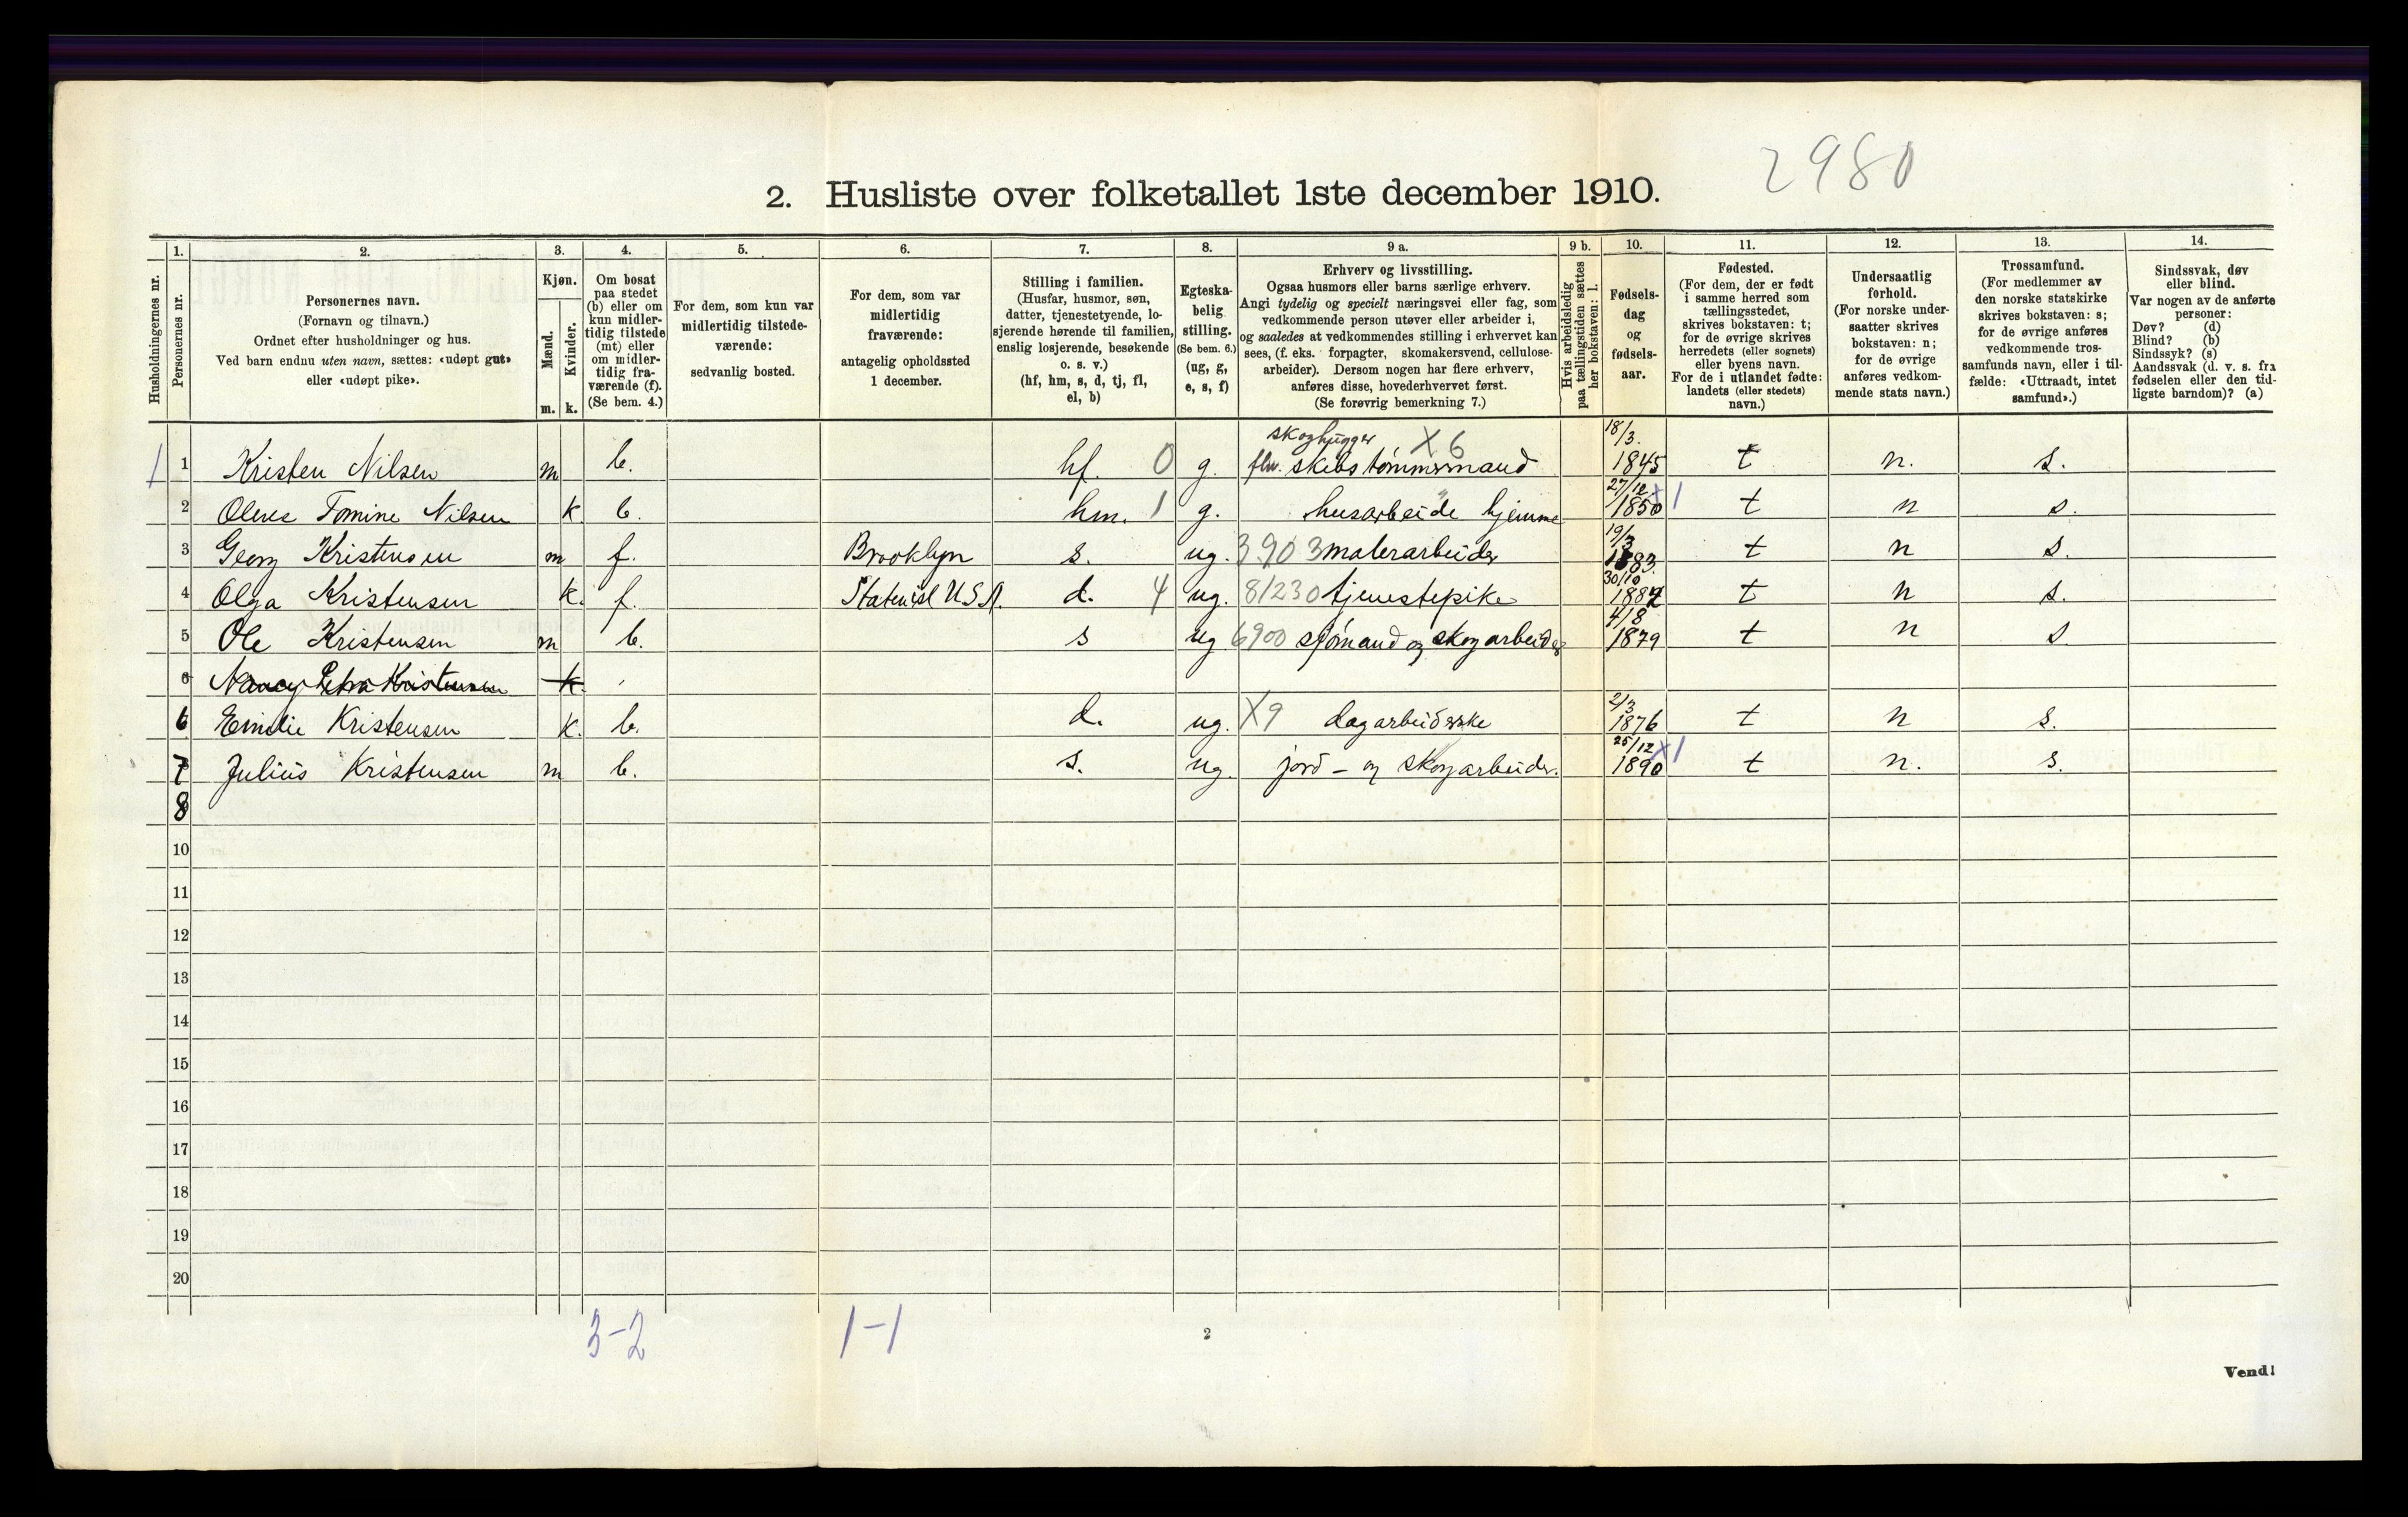 2980
2. Husliste over folketallet 1ste december 1910.
Husholdningernes nr.
1.
Personernes nr.
2.
Personernes navn.
(Fornavn og tilnavn.)
Ordnet efter husholdninger og hus.
Ved barn endnu uten navn, sættes: «udøpt gut»
eller «udøpt pike».
3.
Kjøn.
Mænd.
Kvinder.
m. k.
4.
Om bosat
paa stedet
(b) eller om
kun midler-
tidig tilstede
(mt) eller
om midler-
tidig fra-
værende (f).
(Se bem. 4.)
5.
For dem, som kun var
midlertidig tilstede-
værende:
sedvanlig bosted.
6.
For dem, som var
midlertidig
fraværende:
antagelig opholdssted
1 december.
7.
Stilling i familien.
(Husfar, husmor, søn,
datter, tjenestetyende, lo-
sjerende hørende til familien,
enslig losjerende, besøkende
o. s. v.)
(hf, hm, s, d, tj, fl,
el, b)
8.
Egteska-
belig
stilling.
(Se bem. 6.)
(ug, g,
e, s, f)
9 a.
Erhverv og livsstilling.
Ogsaa husmors eller barns særlige erhverv.
Angi tydelig og specielt næringsvei eller fag, som
vedkommende person utøver eller arbeider i,
og saaledes at vedkommendes stilling i erhvervet kan
sees, (f. eks. forpagter, skomakersvend, cellulose-
arbeider). Dersom nogen har flere erhverv,
anføres disse, hovederhvervet først.
(Se forøvrig bemerkning 7.)
9 b.
Hvis arbeidsledig
paa tællingstiden sættes
her bokstaven: l.
10.
Fødsels-
dag
og
fødsels-
aar.
11.
Fødested.
(For dem, der er født
i samme herred som
tællingsstedet,
skrives bokstaven: t;
for de øvrige skrives
herredets (eller sognets)
eller byens navn.
For de i utlandet fødte:
landets (eller stedets)
navn.)
12.
Undersaatlig
forhold.
(For norske under-
saatter skrives
bokstaven: n;
for de øvrige
anføres vedkom-
mende stats navn.)
13.
Trossamfund.
(For medlemmer av
den norske statskirke
skrives bokstaven: s;
for de øvrige anføres
vedkommende tros-
samfunds navn, eller i til-
fælde: «Uttraadt, intet
samfund».)
14.
Sindssvak, døv
eller blind.
Var nogen av de anførte
personer:
Døv? (d)
Blind? (b)
Sindssyk? (s)
Aandssvak (d. v. s. fra
fødselen eller den tid-
ligste barndom)? (a)
skoghugger X6 18/3.
1 1 Kristen Nilsen m b. hf. 0 g. flw. skibstømmermand 1845 t n. s.
27/12 X1
2 Olene Tomine Nilsen k. b. hm. 1 g. husarbeide hjemme 1850 t n s.
19/3
3 Georg Kristensen m f. Brooklyn s. ug. 3903 malerarbeider 1883. t n s.
30/10
4 Olga Kristensen k. f. Statenisl U.S.A. d. 4 ug. 81230 tjenestepike 1887 t n s.
4/8
5 Ole Kristensen m b. s ug 6900 sjømand og skogarbeider 1879 t n s
6 Nancy Petra Kristensen k.
2/3
6 Emilie Kristensen k. b. d. ug. X9 dagarbeiderske 1876 t n s.
25/12 X1
7 Julius Kristensen m b. s. ug. jord- og skogarbeider. 1890 t n. s.
8
10
11
12
13
14
15
16
17
18
19
20
3-2 1-1
2
Vend!